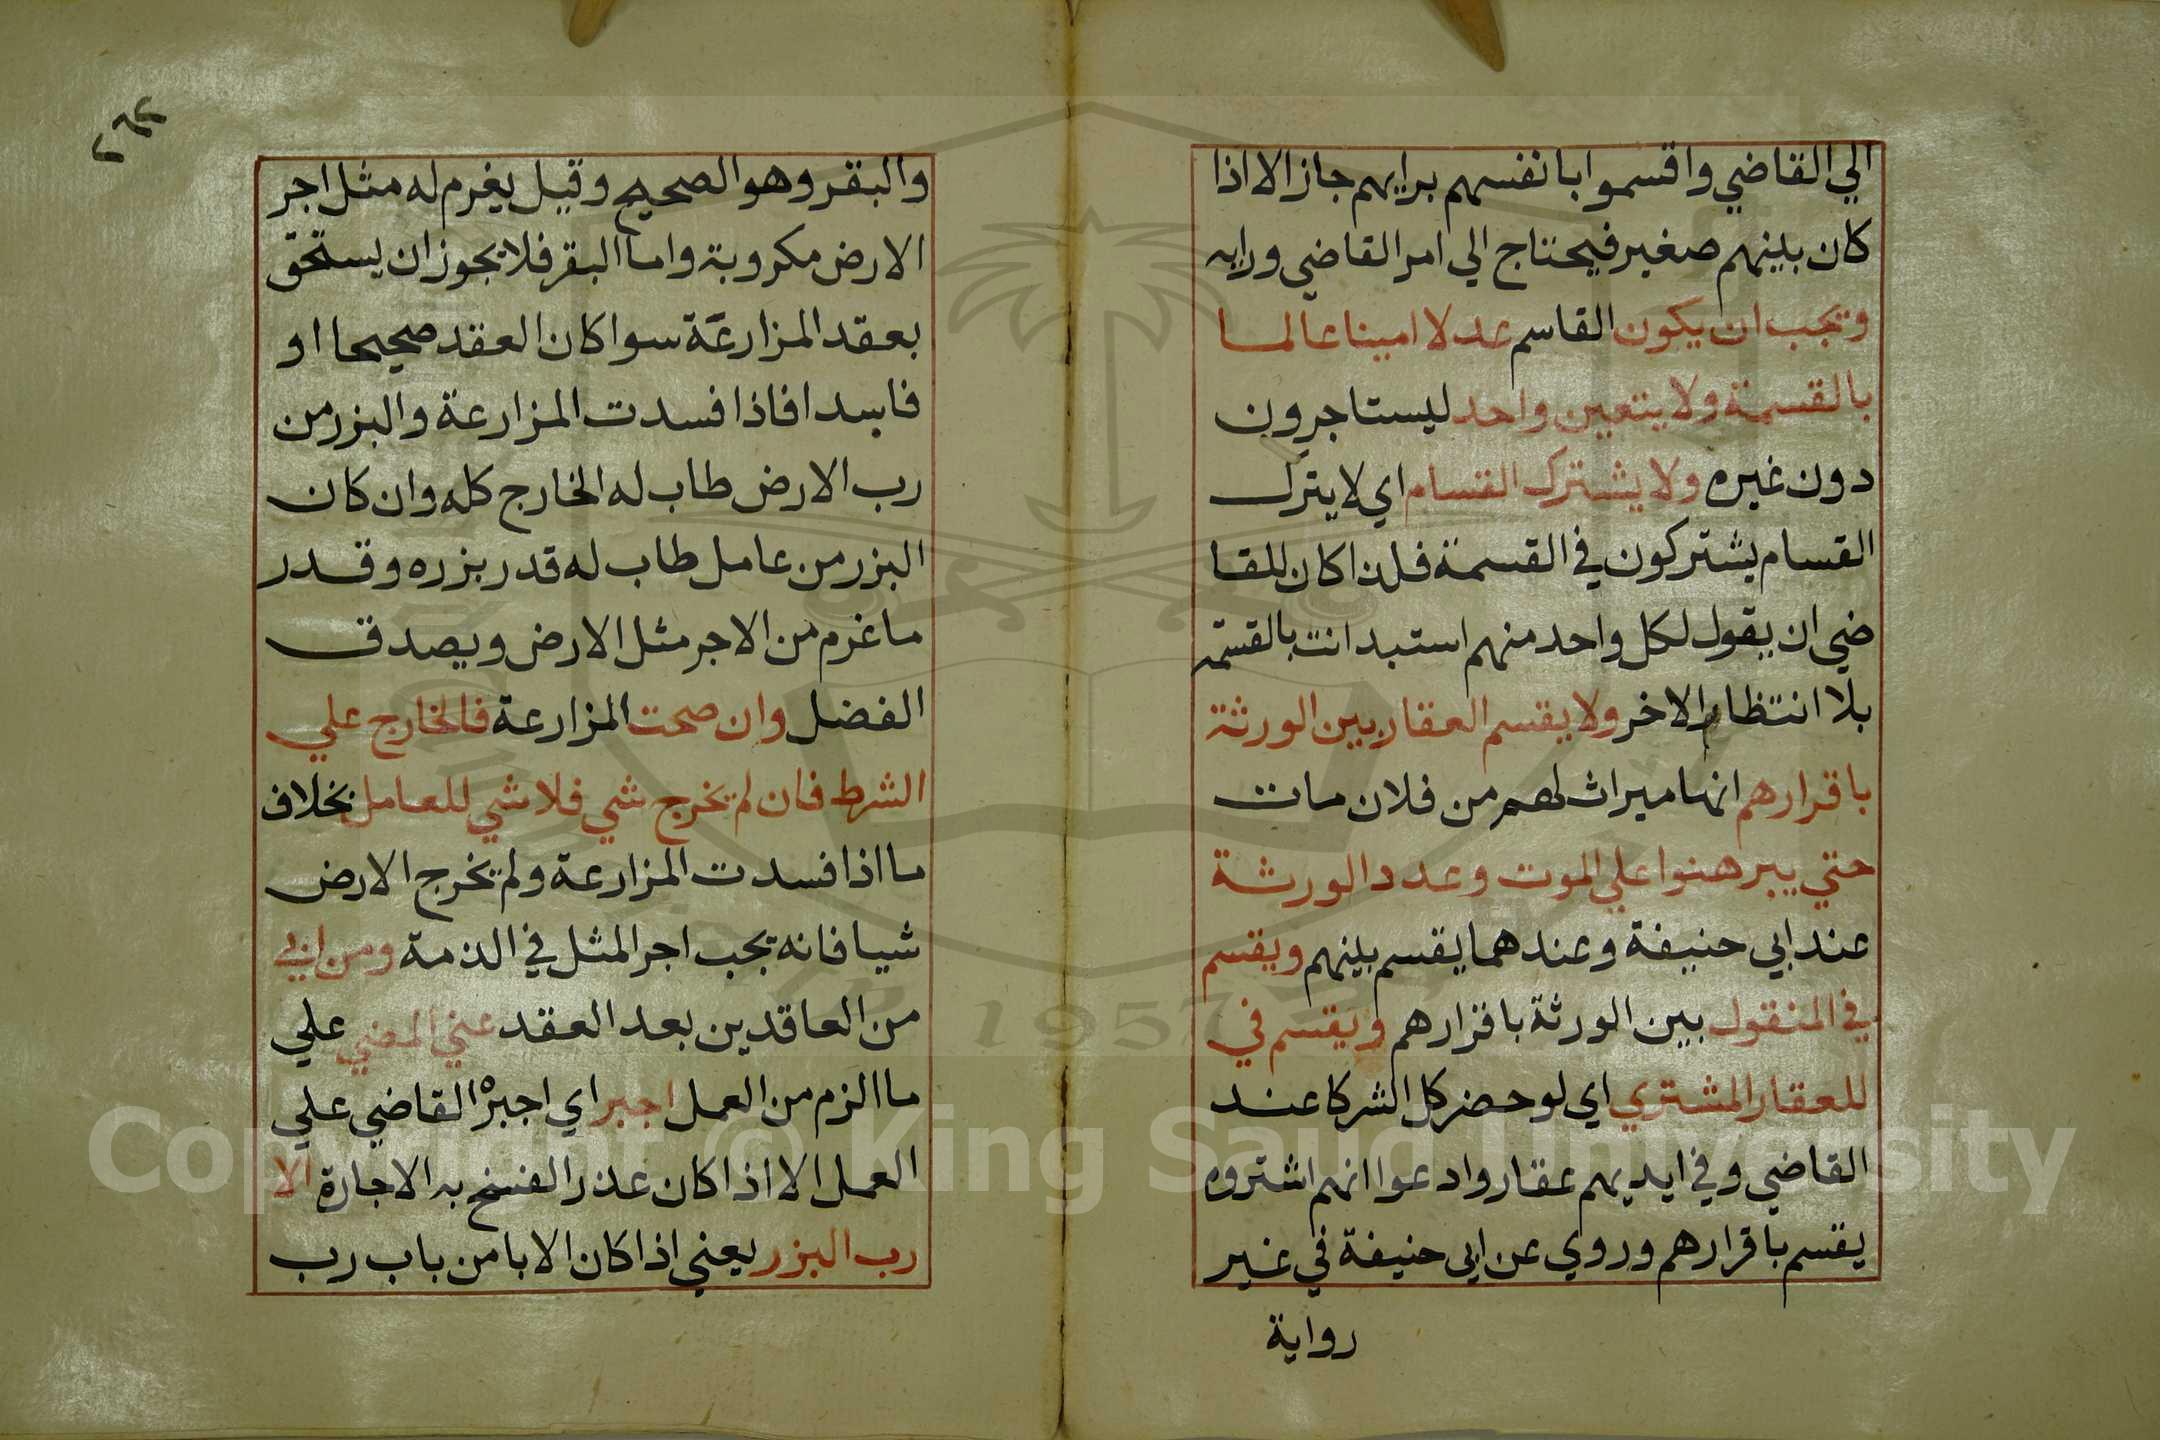 الي القاضي واقسموا بانفسهم برايهم جاز الا اذا
كان بينهم صغير فيحتاج الي امر القاضي ورايه
ويجب ان يكون القاسم عدلا امينا عالما
بالقسمة ولا يتعين واحد ليستاجرون
دون غيره ولا يشترك القسام اي لا يترك
القسام يشتركون في القسمة فلذا كان للقا
ضي ان يقول لكل واحد منهم استبد انت بالقسمة
بلا انتظام الاخر ولا يقسم العقار بين الورثة
باقرارهم انها ميراث لهم من فلان مات
حتي يبرهنوا علي الموت وعدد الورثة
عند ابي حنيفة وعندهما يقسم بينهم ويقسم
في المنقول بين الورثة باقرارهم ويقسم في
للعقار المشتري اي لو حضر كل الشركا عند
القاضي وفي ايديهم عقار وادعوا انهم اشتروه
يقسم باقرارهم وروي عن ابي حنيفة في غير
رواية
والبقر وهو الصحيح وقيل يغرم له مثل اجر
الارض مكروبة واما البقر فلا يجوز ان يستحق
بعقد المزارعة سوا كان العقد صحيحا او
فاسدا فاذا فسدت المزارعة والبزر من
رب الارض طاب له الخارج كله وان كان
البزر من عامل طاب له قدر بزره وقدر
ما غرم من الاجر مثل الارض ويصدق
الفضل وان صحت المزارعة فالخارج علي
الشرط فان لم يخرج شي فلا شي للعامل بخلاف
ما اذا فسدت المزارعة ولم يخرج الارض
شيا فانه يجب اجر المثل في الذمة ومن ابي
من العاقدين بعد العقد عني المضي علي
ما الزم من العمل اجبر اي اجبره القاضي علي
العمل الا اذا كان عذر الفسخ به الاجارة الا
رب البزر يعني اذا كان الابا من باب رب
1957
Copyright © King Saud University